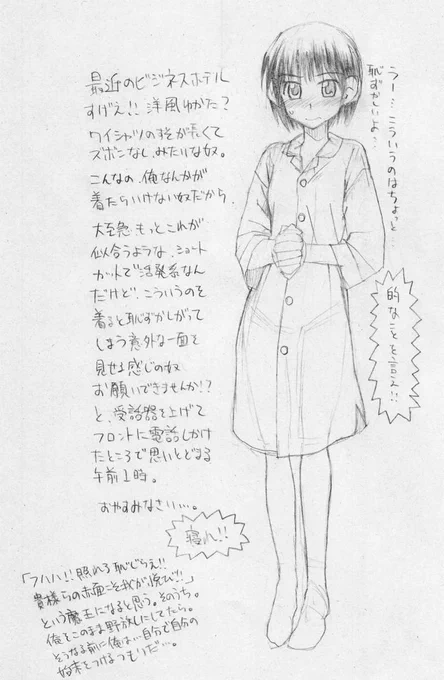 最近のビジネスホテル
すげえ!!洋風ゆかた?
ワイシャツの丈が長くて
ズボンなし、みたいな奴。
こんなの、俺なんかが
着たらいけない奴だから、
大至急、もっとこれが
似合うような、ショート
カットで活発系なん
だけど、こういうのを
着ると恥ずかしがって
しまう意外な一面を
見せる感じの奴
お願いできませんか!?
と、受話器を上げて
フロントに電話しかけ
たところで思いとどまる
午前1時。
おやすみなさい…。
うー…こういうのはちょっと…
恥ずかしいよ…
的なことを言え!!
寝れ!!
「フハハ!!照れろ恥じらえ!!
貴様らの赤面こそ我が悦び!!」
という魔王になると思う。そのうち。
俺をこのまま野放しにしてたら。
そうなる前に俺は…自分で自分の
始末をつけるつもりだ…。